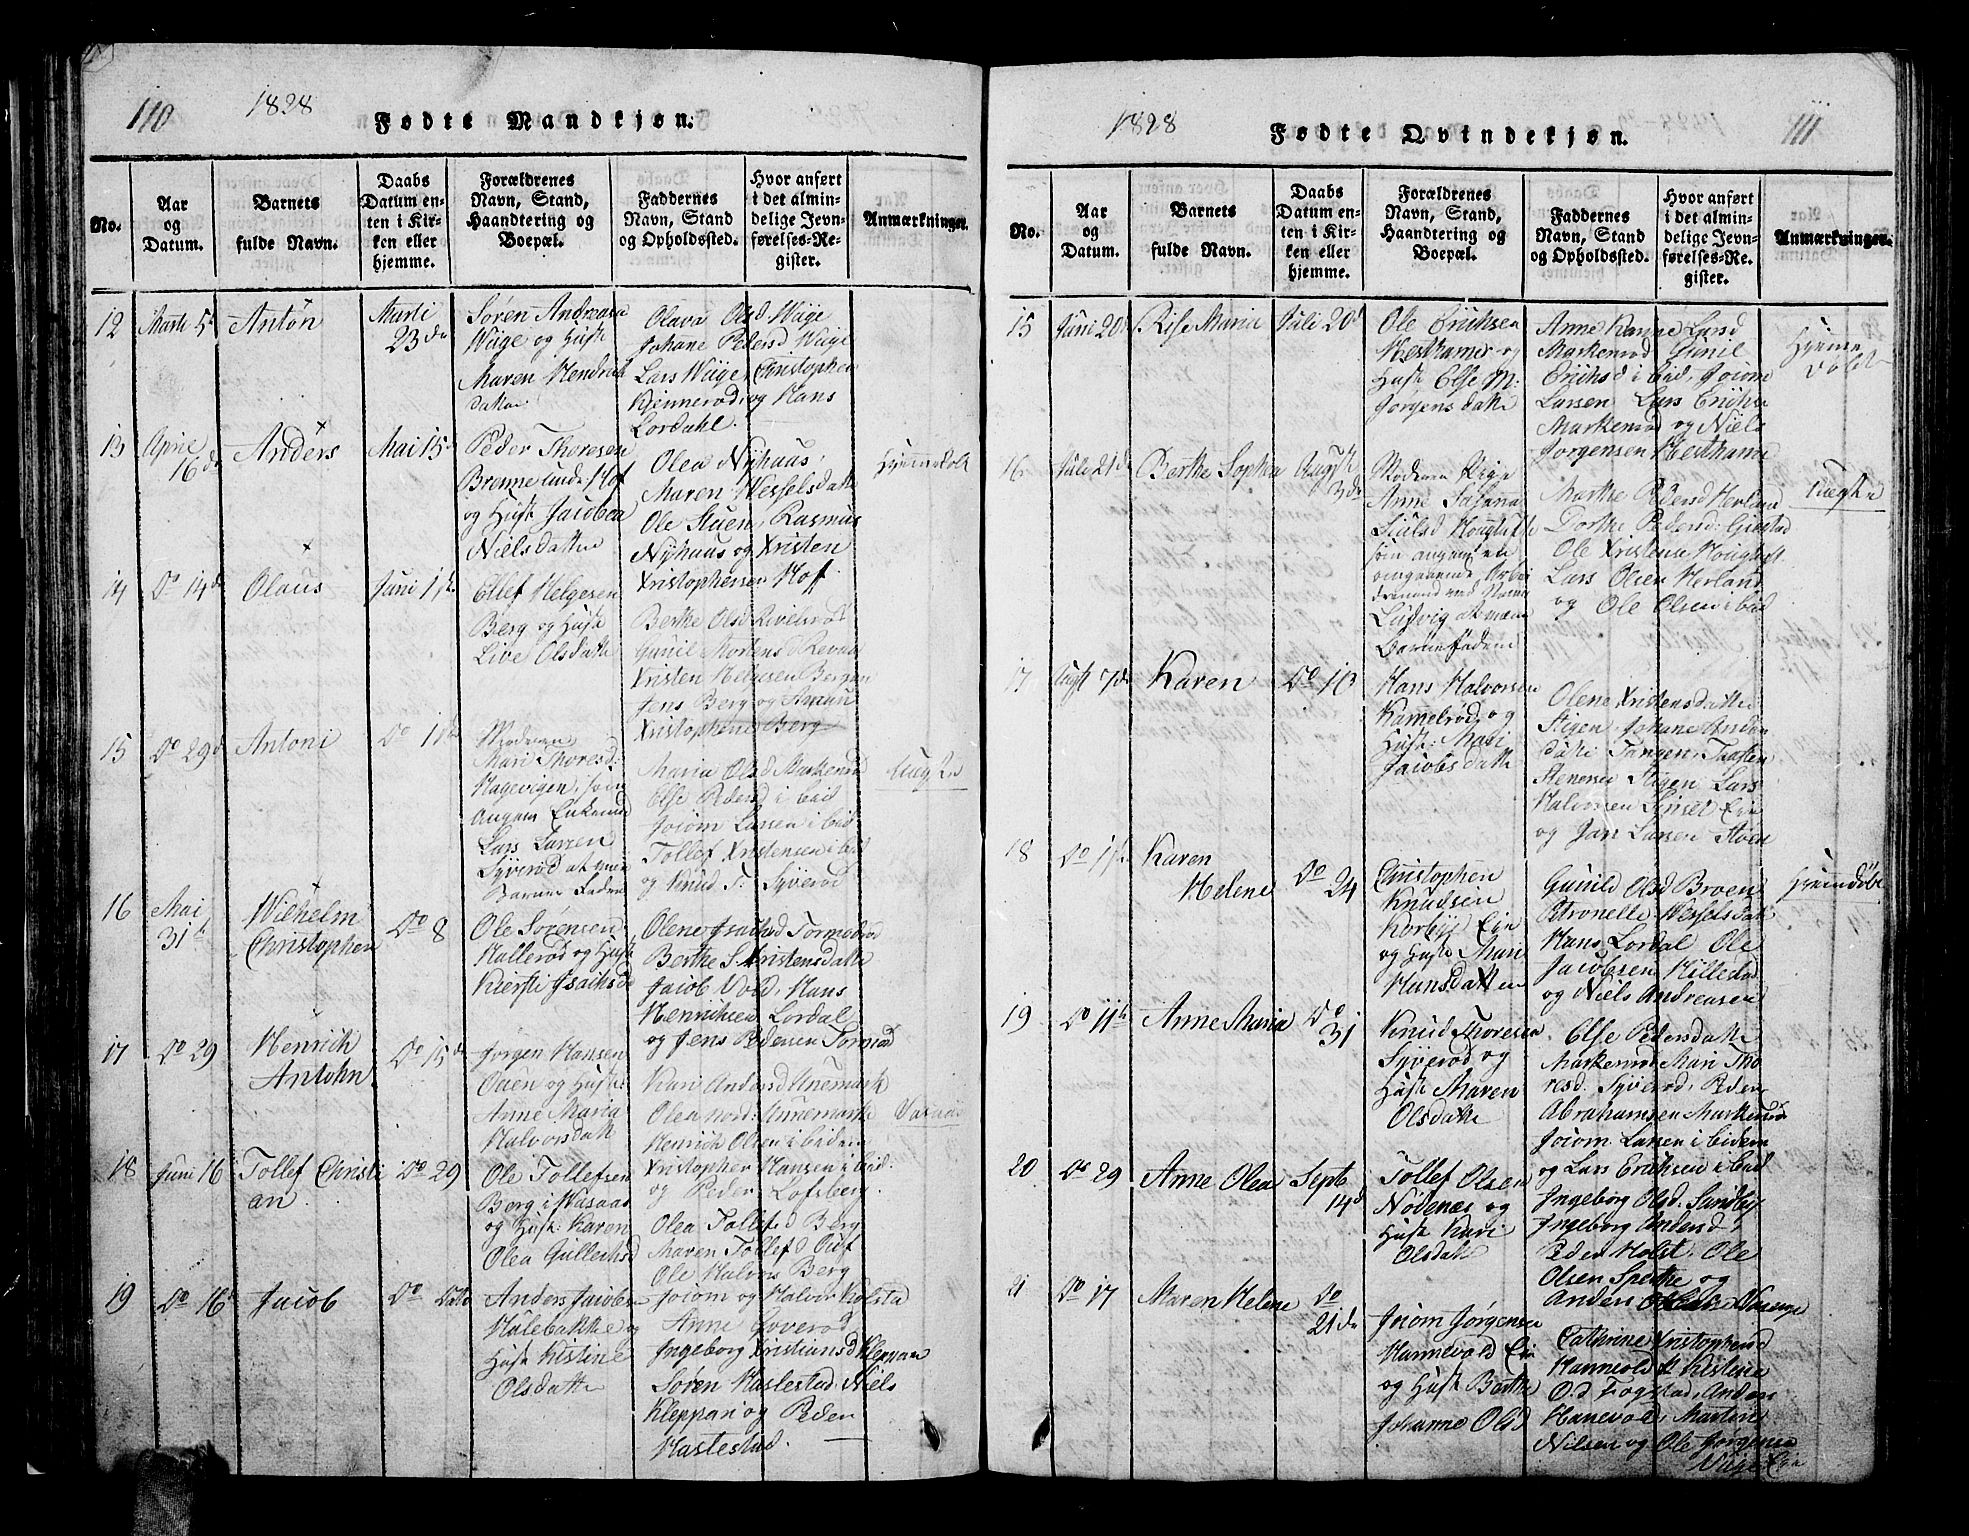 110
1828
Fødte Mandkjøn.
No.
Aar
og
Datum.
Barnets
fulde Navn.
Daabs
Datum en-
ten i Kir-
ken eller
hjemme.
Forældrenes
Navn, Stand,
Haandtering og
Boepæl.
Faddernes
Navn, Stand
og Opholdssted.
Hvor anført
i det almin-
delige Jevn-
førelses-Re-
gister.
Anmærkninger.
12
Marti 5t
Anton
Marti
23de
Søren Andreas
Wiige og Hust
Maren Hendrik
datter
Olava Olsd Wiige
Johane Pedersd Wiige
Lars Wiige, Christophen
Kjennerød og Hans
Lordahl.
13
April
16de
Anders
Mai 15
Peder Thoresen
Brenne unde Hof
og Hust Jacobea
Nielsdatter
Olea Nyhaus,
Maren Wesselsdatte
Ole Stuen, Rasmus
Nyhaus og Xristen
Xristophersen Hof
Hjemmedøbt
14
Do 14de
Olaus
Juni 1ste
Ellef Helgesen
Berg og Hust
Live Olsdatte
Berthe Olsd Rivelsrød
Gunil Mortensd Revaa
Xristen Helgesen Bergan
Jens Berg og Aman
Xristophersen Berg
15
Do 29d
Antoni
Do 1ste
Moderen
Mari Thoresd:
Hagevigen, som
Angav Enkemand
Lars Larsen
Syverød at være
Barne Faderen
Maria Olsd Markerød
Else Pedersd i bid
Joiom Larsen i bid
Tollef Xristensen i bid
og Knud T. Syverød
Uægte
16
Mai
31te
Wilhelm
Christopher
Do 8
Ole Sørensen
Hallerød og Hust
Kiersti Isachsd
Olene Isachsd Tormodrød
Berthe S Kristensdatte
Jacob Vold, Hans
Henrichsen Lordal
og Jens Pedersen Tormod
17
Do 29
Henrich
Antohn
Do 15de
Jørgen Hansen
Oaen og Hust
Anne Maria
Halvorsdatt
Kari Andersd Unemark
Olea nord: Unnemark
Henrich Olsen i bidem
Xristopher Hansen i bid.
og Peder Lofsberg.
Vasaas
18
Juni 16
Tollef Christi
an
Do 29
Ole Tollefsen
Berg i Wasaas
og Hust Karen
Olea Gullichsd
Olea Tollefsd Berg
Maren Tollefsd Ouf
Ole Halvors Berg
Joiom og Halvor Kolsta
19
Do 16
Jacob
Do Dato
Anders Jacobsen
Halebakke og
Hust Kistine
Olsdatte
Anne Syverød
Ingeborg Xristiansd Kleppan
Søren Haslestad, Niels
Kleppan og Peder
Haslestad.
1828
Fødte Qvindekjøn.
111
No.
Aar
og
Datum.
Barnets
fulde Navn.
Daabs
Datum en-
ten i Kir-
ken eller
hjemme.
Forældrenes
Navn, Stand,
Haandtering og
Boepæl.
Faddernes
Navn, Stand
og Opholdssted.
Hvor anført
i det almin-
delige Jevn-
førelses-Re-
gister.
Anmærkninger.
15
Juni 20
Rise Maria
Juli 20
Ole Erichsen
Hesthamer og
Hust Else M:
Jørgensdatte
Anne Karine Larsd
Markerød, Gunil
Erichsd i bid, Joiom
Larsen Lars Erichse
Markerød og Niels
Jørgensen Hesthame
Hjemme
døbt
16
Juli 21de
Berthe Sophia
August
3de
Moderen Pige
Anne Susana
Juulsd Hougtvedt
som angav en
omgaaende Arbei
dsmand ved Navn
Ludvig at være
Barnefaderen
Marthe Pedersd Herland
Dorthe Pedersd: Gusestad
Ole Xristens Hougtvedt
Lars Olsen Herland
og Ole Olsen i bid
Uægte
17
Augst 7de
Karen
Do 10
Hans Halvorsen
Kamelrød og
Hust: Mari
Jacobsdatte
Olene Xristensdatte
Stigen Johane Anders
datte Tangen, Torsten
Stenersen Stigen Lars
Halvorsen Linset Eie
og Jan Larsen Stoen
18
Do 1ste
Karen
Helene
Do
24
Christophen
Knudsen
Korbye Eie
og Hust Mari
Hansdatten
Gunild Olsd Broen
Petronelle Wesselsdat
Hans Lordal Ole
Jacobsen Hillestad
og Niels Andreasen
Hjemmdøbt
19
Do 11te
Anne Maria
Do
31
Knud Thoresen
Syverød og
Hust Maren
Olsdatte
Else Pedersdatte
Markerød Mari Tho
resd. Syverød, Peder
Abrahamsen Markerød
Joiom Larsen i bidem
og Lars Erichsen i bid
20
Do 29
Anne Olea
Septb
14de
Tollef Olsen
Nødenæs og
Hust Kari
Olsdatte
Ingeborg Olsd. Sundbye
Ingeborg Andersd
Peder Holst. Ole
Olsen Spethe og
21
Do 17
Maren Helene
Do
21de
Joiom Jørgensen
Hannevold Eie
og Hust Berthe
Johanne Olsd
Cathrine Xristophersd
Hannevold Kistine
O.d Fogstad, Anders
Hanevold, Martin
Nilsen og Ole Jørgensen